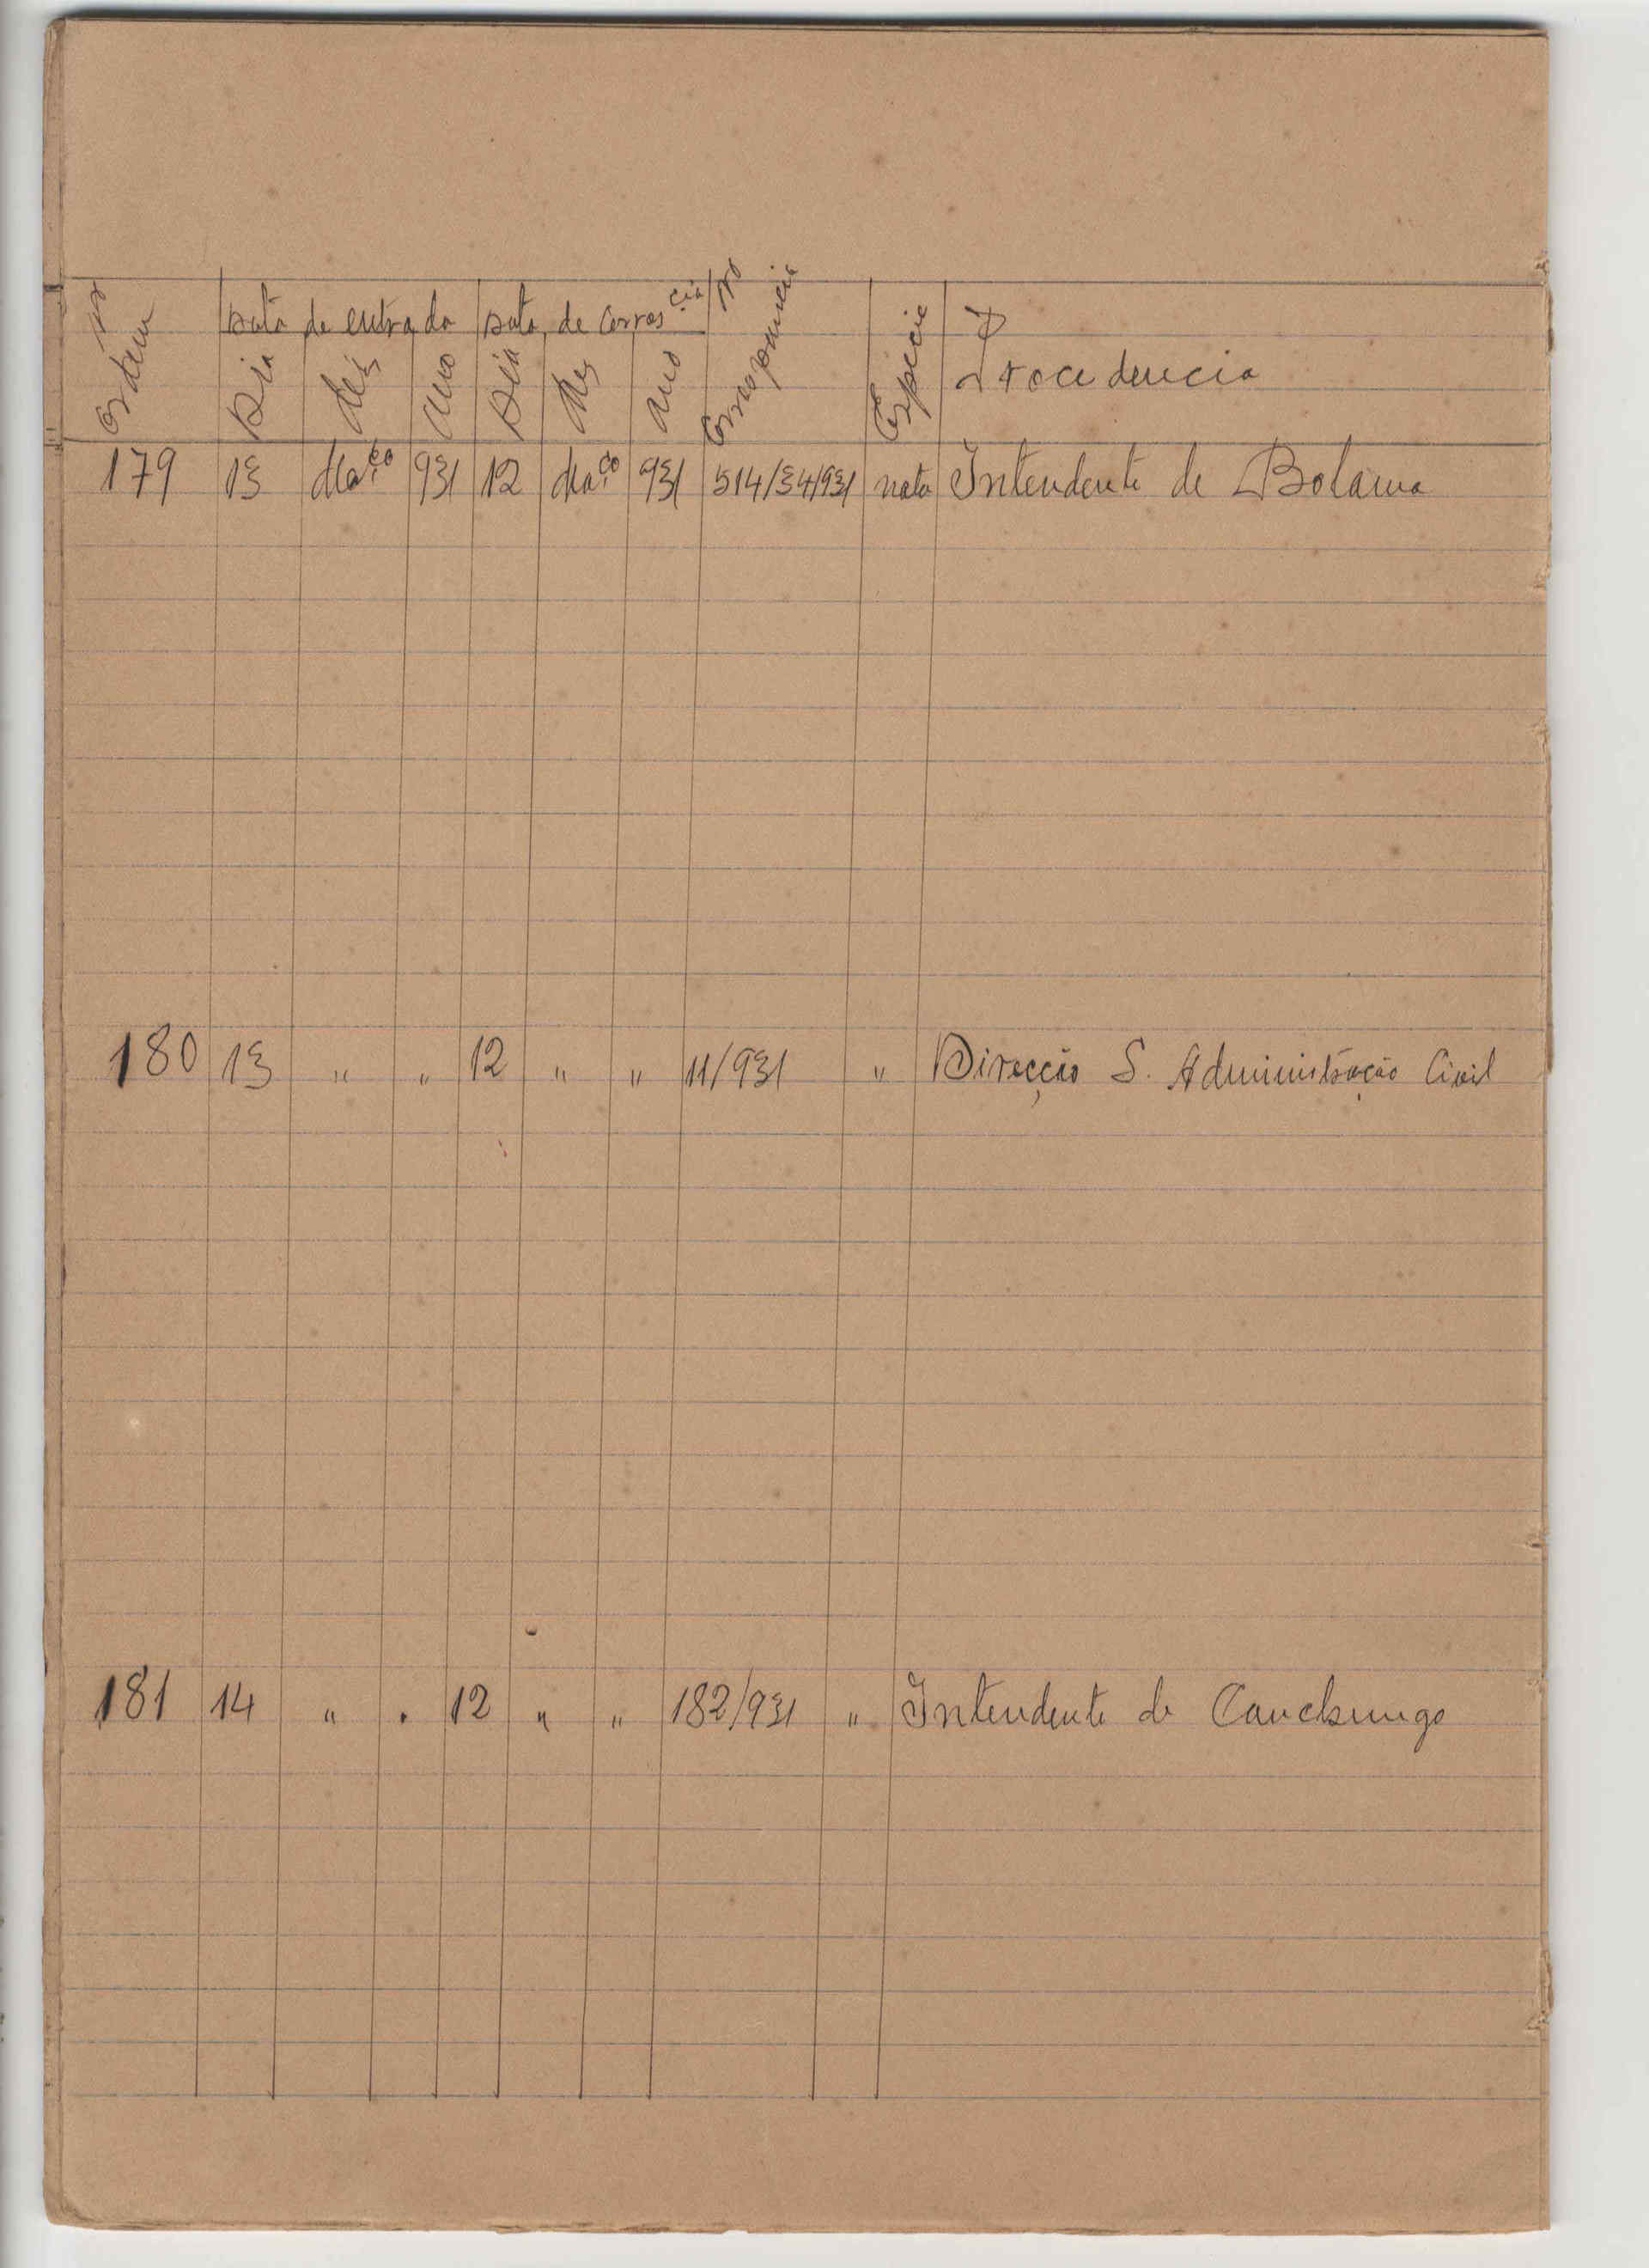 Nº Ordem
Data de entrada Data de corres.cia Nº Correspondencia Especie Procedencia
Dia Mês Ano Dia Mês Ano
179 13 Mar.ço 931 12 Mar.ço 931 514/34/931 nota Intendente de Bolama
180 13 " " 12 " " 11/931 " Direcção S. Administração Civil
181 14 " " 12 " " 182/931 " Intendente de Canchungo